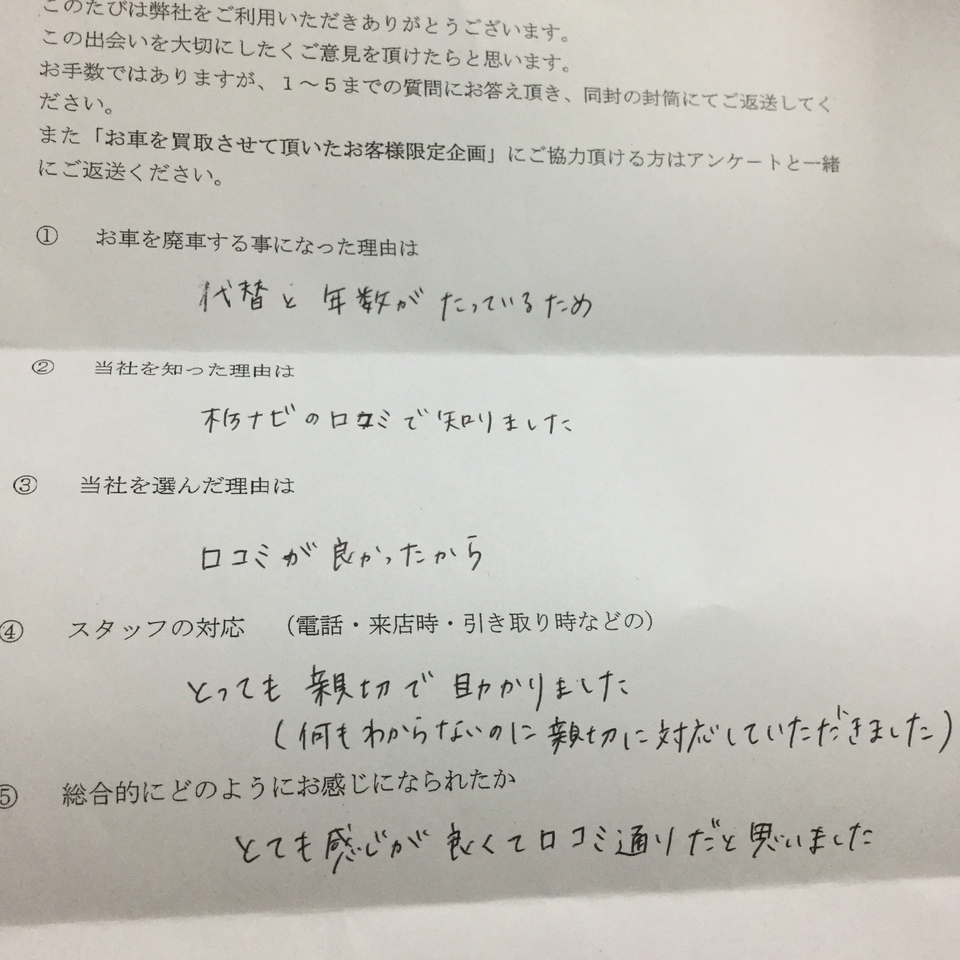 このたびは弊社をご利用いただきありがとうございます。
この出会いを大切にしたくご意見を頂けたらと思います。
お手数ではありますが、１～５までの質問にお答え頂き、同封の封筒にてご返送してく
ださい。
また「お車を買取させて頂いたお客様限定企画」にご協力頂ける方はアンケートと一緒
にご返送ください。
① お車を廃車する事になった理由は
代替と年数がたっているため
② 当社を知った理由は
栃ナビの口コミで知りました
③ 当社を選んだ理由は
口コミが良かったから
④ スタッフの対応 （電話・来店時・引き取り時などの）
とっても親切で助かりました
(何もわからないのに親切に対応していただきました)
⑤ 総合的にどのようにお感じになられたか
とても感じが良くて口コミ通りだと思いました